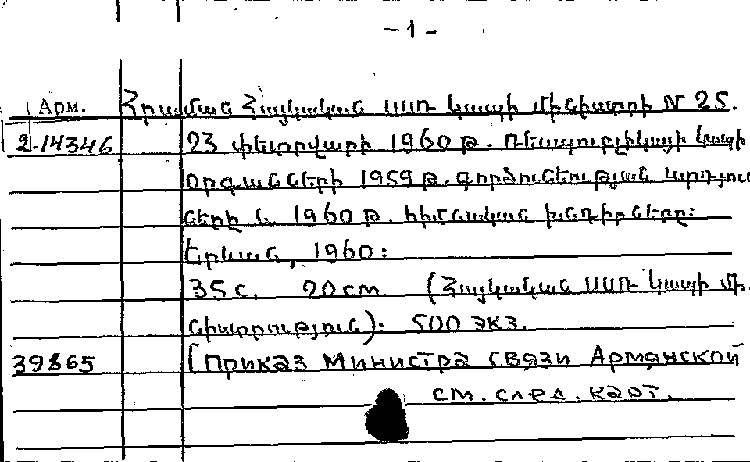 - 1 -
Арм. Հրաման Հայկական ՍՍՌ կապի մինիստրի N 25.
2-14346 23 փետրվարի 1960 թ. Ռեսպուբլիկայի կապի
օրգանների 1959 թ. գործունեության արդյու
ները և 1960 թ. հիմնական խնդիրները:
Երևան, 1960:
35 с. 20 см (Հայկական ՍՍՌ կապի մի.
նիստրություն): 500 экз.
39865 [Приказ Министра связи Армянской
см. след. карт.